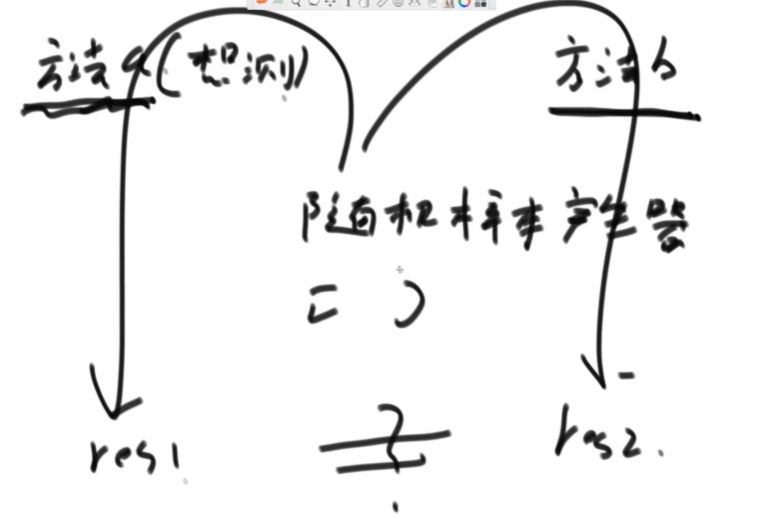 方法a(想测)
方法b
随机样本产生器
[ )
res1
=?
res2.